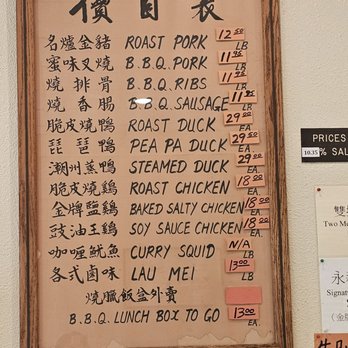 價目表
名爐金豬 ROAST PORK 12.50 LB
蜜味叉燒 B.B.Q. PORK 11.95 LB
燒排骨 B.B.Q. RIBS 11.95 LB
燒香腸 B.B.Q. SAUSAGE 11.95 LB
脆皮燒鴨 ROAST DUCK 29.00 EA.
琵琶鴨 PEA PA DUCK 29.50 EA
潮州蒸鴨 STEAMED DUCK 29.00 EA.
脆皮燒鷄 ROAST CHICKEN 18.00 EA
金牌鹽鷄 BAKED SALTY CHICKEN 18.00 EA
豉油王鷄 SOY SAUCE CHICKEN 18.00 EA.
咖喱魷魚 CURRY SQUID N/A LB
各式鹵味 LAU MEI 13.00 LB
燒臘飯盆外賣
B.B.Q. LUNCH BOX TO GO 13.00 EA.
PRICES
10.35 % SAL
Two Me
永
Signat